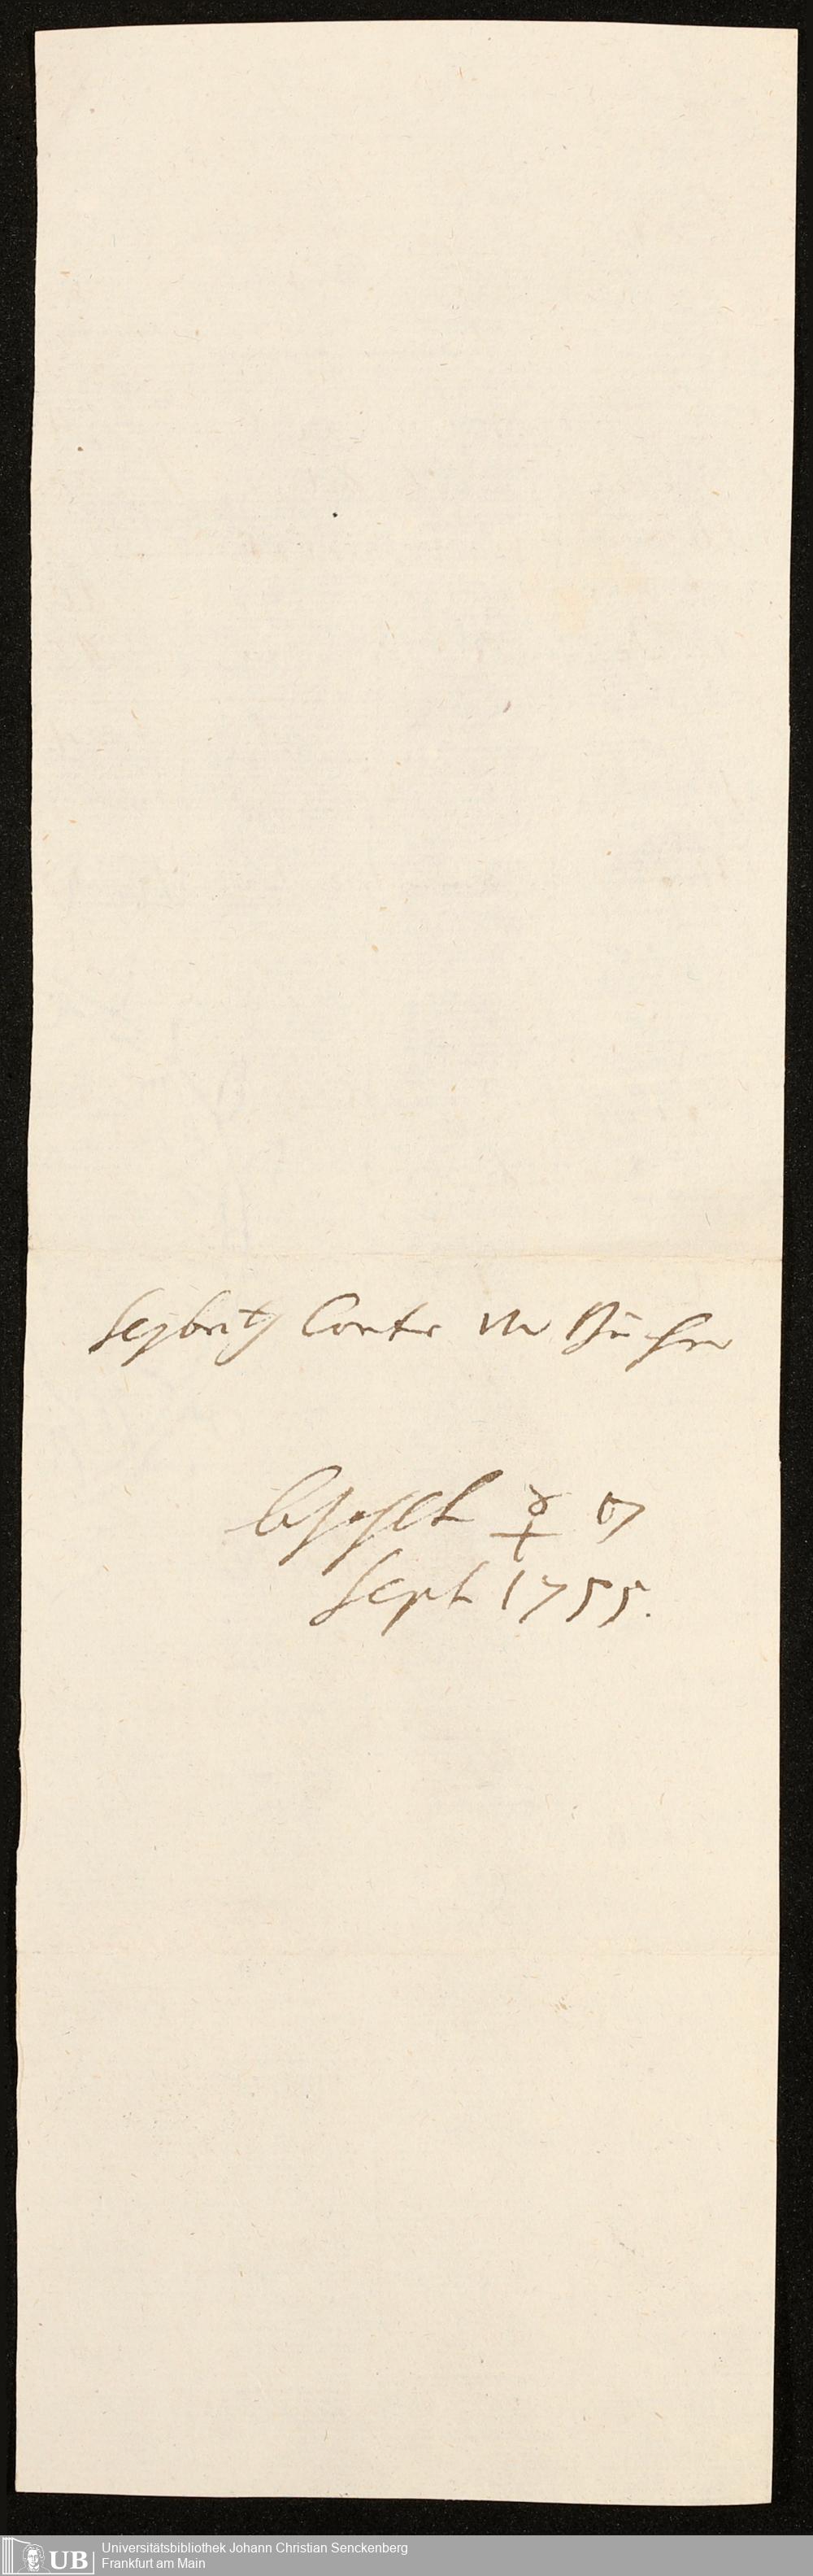 Seybritz Conto vor Bücher
bezahlt ☿ 17
Sept 1755.
UB
Universitätsbibliothek Johann Christian Senckenberg
Frankfurt am Main